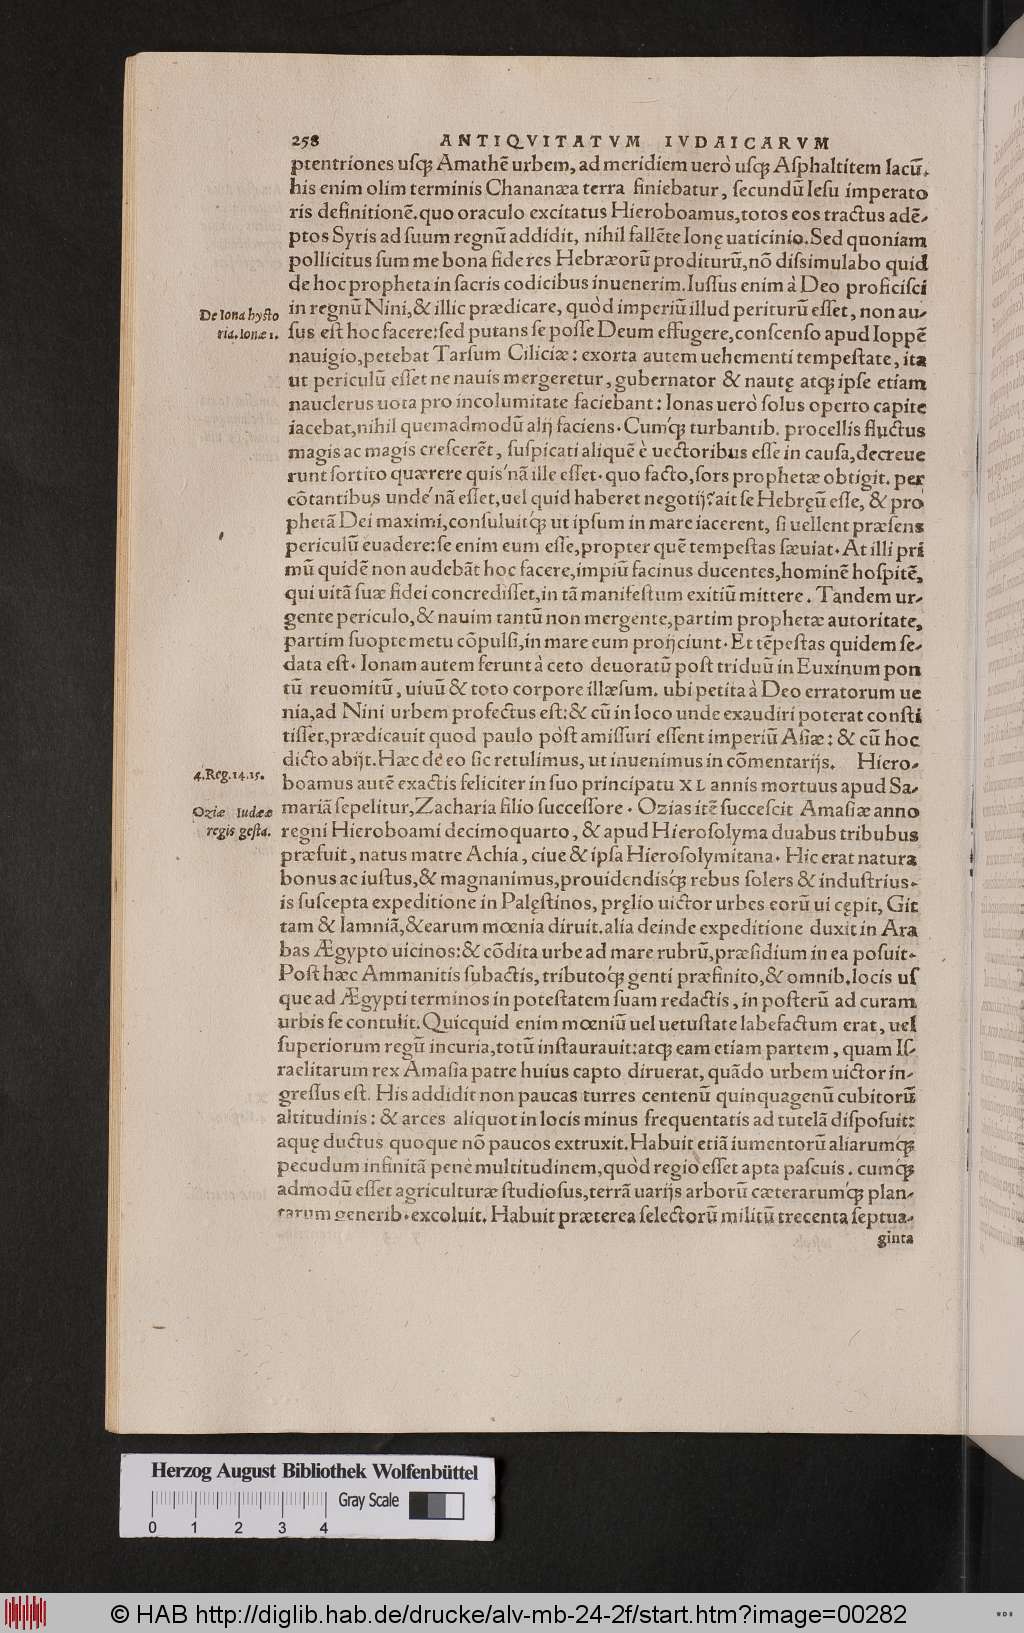 258 ANTIQVITATVM IVDAICARVM
ptentriones uſq́; Amathẽ urbem, ad meridiem uerò uſq́; Aſphaltitem lacũ.
his enim olim terminis Chananæa terra finiebatur, ſecundũ Ieſu imperato
ris definitionẽ. quo oraculo excitatus Hieroboamus, totos eos tractus adẽ-
ptos Syris ad ſuum regnũ addidit, nihil fallẽte Ionę uaticinio. Sed quoniam
pollicitus ſum me bona fide res Hebræorũ proditurũ, nõ diſsimulabo quid
de hoc propheta in ſacris codicibus inuenerim. Iuſſus enim à Deo proficiſci
De Iona hyſto
ria. Ionæ 1.
in regnũ Nini, & illic prædicare, quòd imperiũ illud periturũ eſſet, non au-
ſus eſt hoc facere: ſed putans ſe poſſe Deum effugere, conſcenſo apud Ioppẽ
nauigio, petebat Tarſum Ciliciæ: exorta autem uehementi tempeſtate, ita
ut periculũ eſſet ne nauis mergeretur, gubernator & nautę atq́; ipſe etiam
nauclerus uota pro incolumitate faciebant: Ionas uerò ſolus operto capite
iacebat, nihil quemadmodũ alij faciens. Cumq́; turbantib. procellis fluctus
magis ac magis creſcerẽt, ſuſpicati aliquẽ è uectoribus eſſe in cauſa, decreue
runt ſortito quærere quis'nã ille eſſet. quo facto, ſors prophetæ obtigit. per
cõtantibus unde'nã eſſet, uel quid haberet negotij? ait ſe Hebręũ eſſe, & pro
phetã Dei maximi, conſuluitq́; ut ipſum in mare iacerent, ſi uellent præſens
periculũ euadere: ſe enim eum eſſe, propter quẽ tempeſtas ſæuiat. At illi pri
mũ quidẽ non audebãt hoc facere, impiũ facinus ducentes, hominẽ hoſpitẽ,
qui uitã ſuæ fidei concrediſſet, in tã manifeſtum exitiũ mittere. Tandem ur-
gente periculo, & nauim tantũ non mergente, partim prophetæ autoritate,
partim ſuopte metu cõpulſi, in mare eum proijciunt. Et tẽpeſtas quidem ſe-
data eſt. Ionam autem ferunt à ceto deuoratũ poſt triduũ in Euxinum pon
tũ reuomitũ, uiuũ & toto corpore illæſum. ubi petita à Deo erratorum ue
nia, ad Nini urbem profectus eſt: & cũ in loco unde exaudiri poterat conſti
tiſſet, prædicauit quod paulo pòſt amiſſuri eſſent imperiũ Aſiæ: & cũ hoc
dicto abijt. Hæc de eo ſic retulimus, ut inuenimus in cõmentarijs. Hiero-
4. Reg. 14. 15.
boamus autẽ exactis feliciter in ſuo principatu XL annis mortuus apud Sa-
Oziæ Iudææ
regis geſta.
mariã ſepelitur, Zacharia filio ſucceſſore. Ozias itẽ ſucceſcit Amaſiæ anno
regni Hieroboami decimoquarto, & apud Hieroſolyma duabus tribubus
præfuit, natus matre Achia, ciue & ipſa Hieroſolymitana. Hic erat natura
bonus ac iuſtus, & magnanimus, prouidendisq́; rebus ſolers & induſtrius.
is ſuſcepta expeditione in Palęſtinos, pręlio uictor urbes eorũ ui cępit, Git
tam & Iamniã, & earum mœnia diruit. alia deinde expeditione duxit in Ara
bas Ægypto uicinos: & cõdita urbe ad mare rubrũ, præſidium in ea poſuit.
Poſt hæc Ammanitis ſubactis, tributoq́; genti præfinito, & omnib. locis uſ
que ad Ægypti terminos in poteſtatem ſuam redactis, in poſterũ ad curam
urbis ſe contulit. Quicquid enim mœniũ uel uetuſtate labefactum erat, uel
ſuperiorum regũ incuria, totũ inſtaurauit: atq́; eam etiam partem, quam Iſ-
raelitarum rex Amaſia patre huius capto diruerat, quãdo urbem uictor in-
greſſus eſt. His addidit non paucas turres centenũ quinquagenũ cubitorũ
altitudinis: & arces aliquot in locis minus frequentatis ad tutelã diſpoſuit:
aquę ductus quoque nõ paucos extruxit. Habuit etiã iumentorũ aliarumq́;
pecudum infinitã penè multitudinem, quòd regio eſſet apta paſcuis. cumq́;
admodũ eſſet agriculturæ ſtudioſus, terrã uarijs arborũ cæterarumq́; plan-
tarum generib. excoluit. Habuit præterea ſelectorũ militũ trecenta ſeptua-
ginta
Herzog August Bibliothek Wolfenbüttel
Gray Scale
0 1 2 3 4
© HAB http://diglib.hab.de/drucke/alv-mb-24-2f/start.htm?image=00282